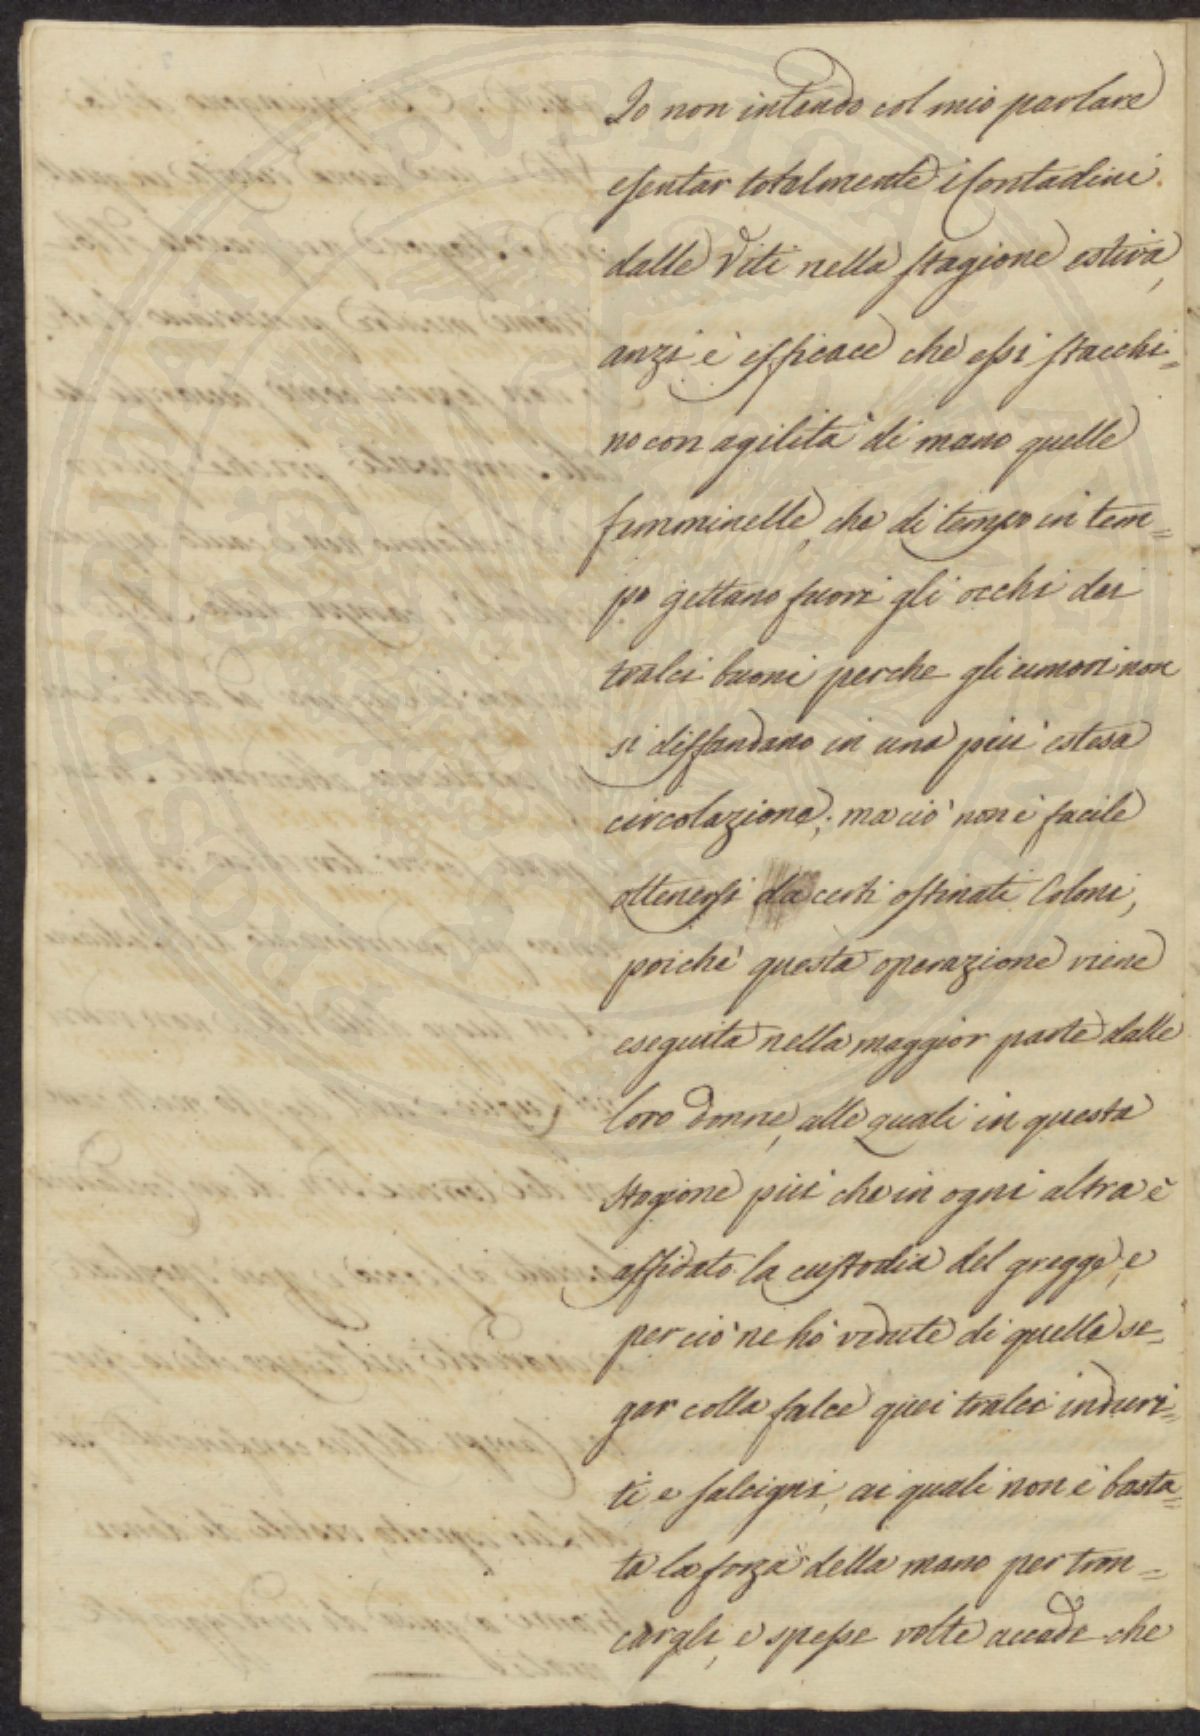 Io non intendo col mio parlare
esentar totalmente i Contadini
dalle Viti nella stagione estiva,
anzi è efficace che essi stacchi=
no con agilità di mano quelle
femminelle, che di tempo in tem=
po gettano fuori gli occhi dei
tralci buoni perche gli umori non
si diffondano in una più estesa
circolazione; ma ciò non è facile
ottenersi da certi ostinati Coloni,
poichè questa operazione viene
eseguita nella maggior parte dalle
loro donne, alle quali in questa
stagione più che in ogni altra è
affidato la custodia del gregge, e
per ciò ne hò vedute di quelle se=
gar colla falce quei tralci induri=
ti e salcigni, ai quali non è basta=
ta la forza della mano per tron=
cargli, e spesse volte accade che